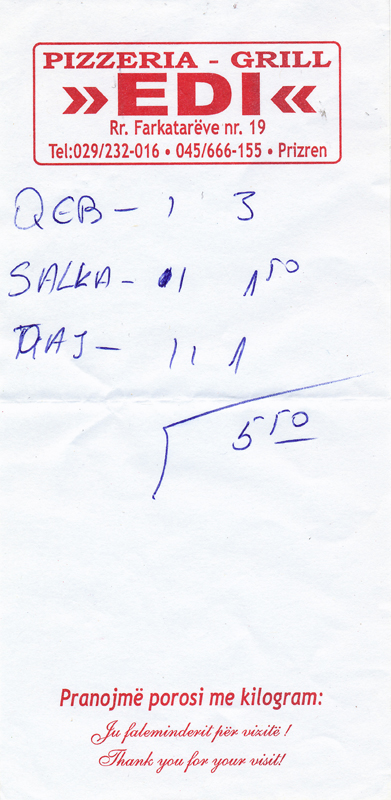 PIZZERIA - GRILL
»EDI«
Rr. Farkatarëve nr. 19
Tel:029/232-016 • 045/666-155 • Prizren
QEB - 1 3
SALKA - 1 1 50
QAJ - 11 1
5 50
Pranojmë porosi me kilogram:
Ju faleminderit për vizitë !
Thank you for your visit!